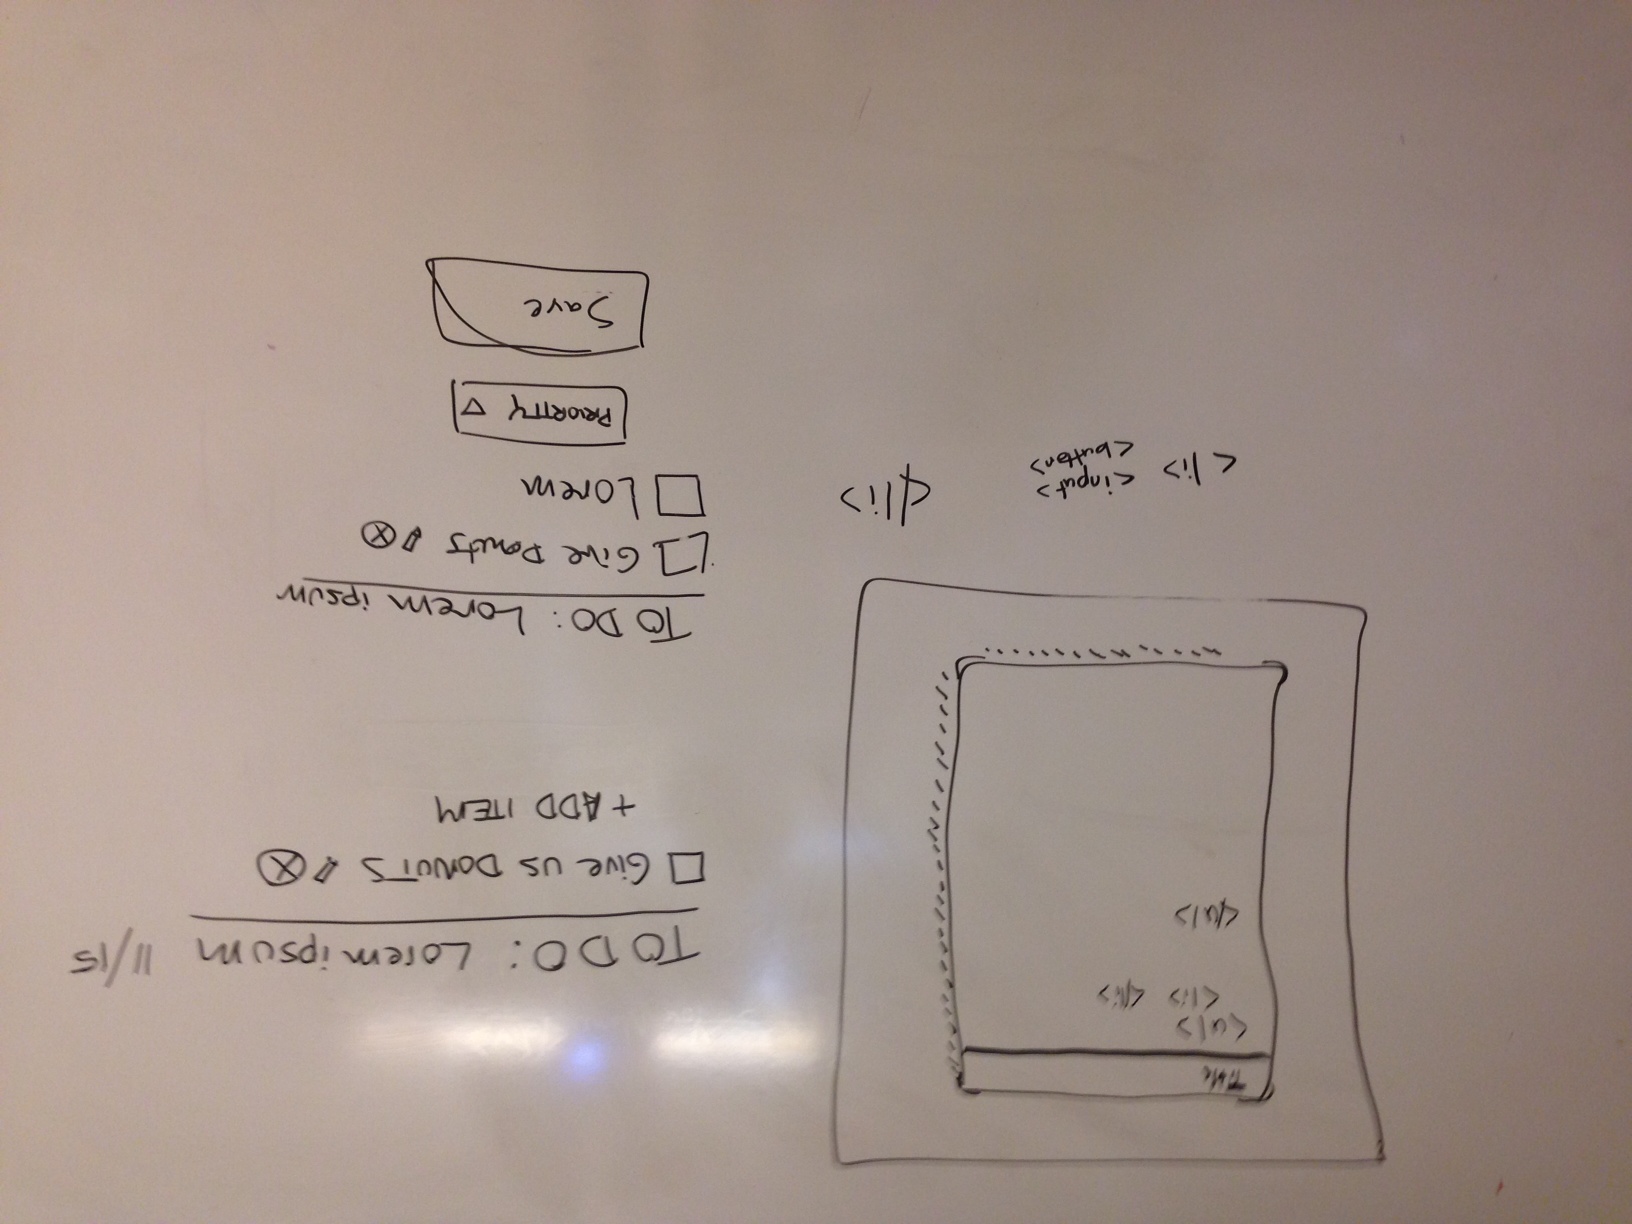 Title
<ul>
<li> </li>
</ul>
<li> <input> </li>
<button>
TO DO: Lorem ipsum 11/15
Give us DONUTS X
+ ADD ITEM
TO DO: Lorem ipsum
Give Donuts X
Lorem
PRIORITY
Save